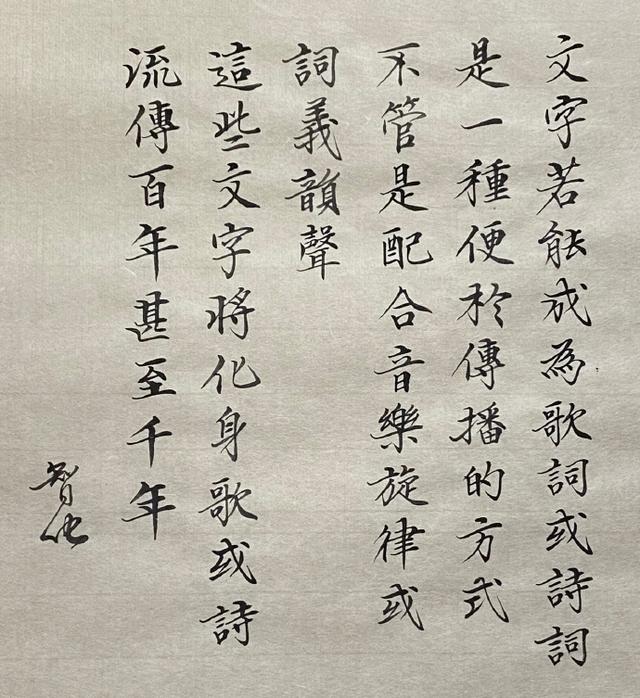 文字若能成為歌詞或詩詞
是一種便於傳播的方式
不管是配合音樂旋律或
詞義韻聲
這些文字將化身歌或詩
流傳百年甚至千年
智化